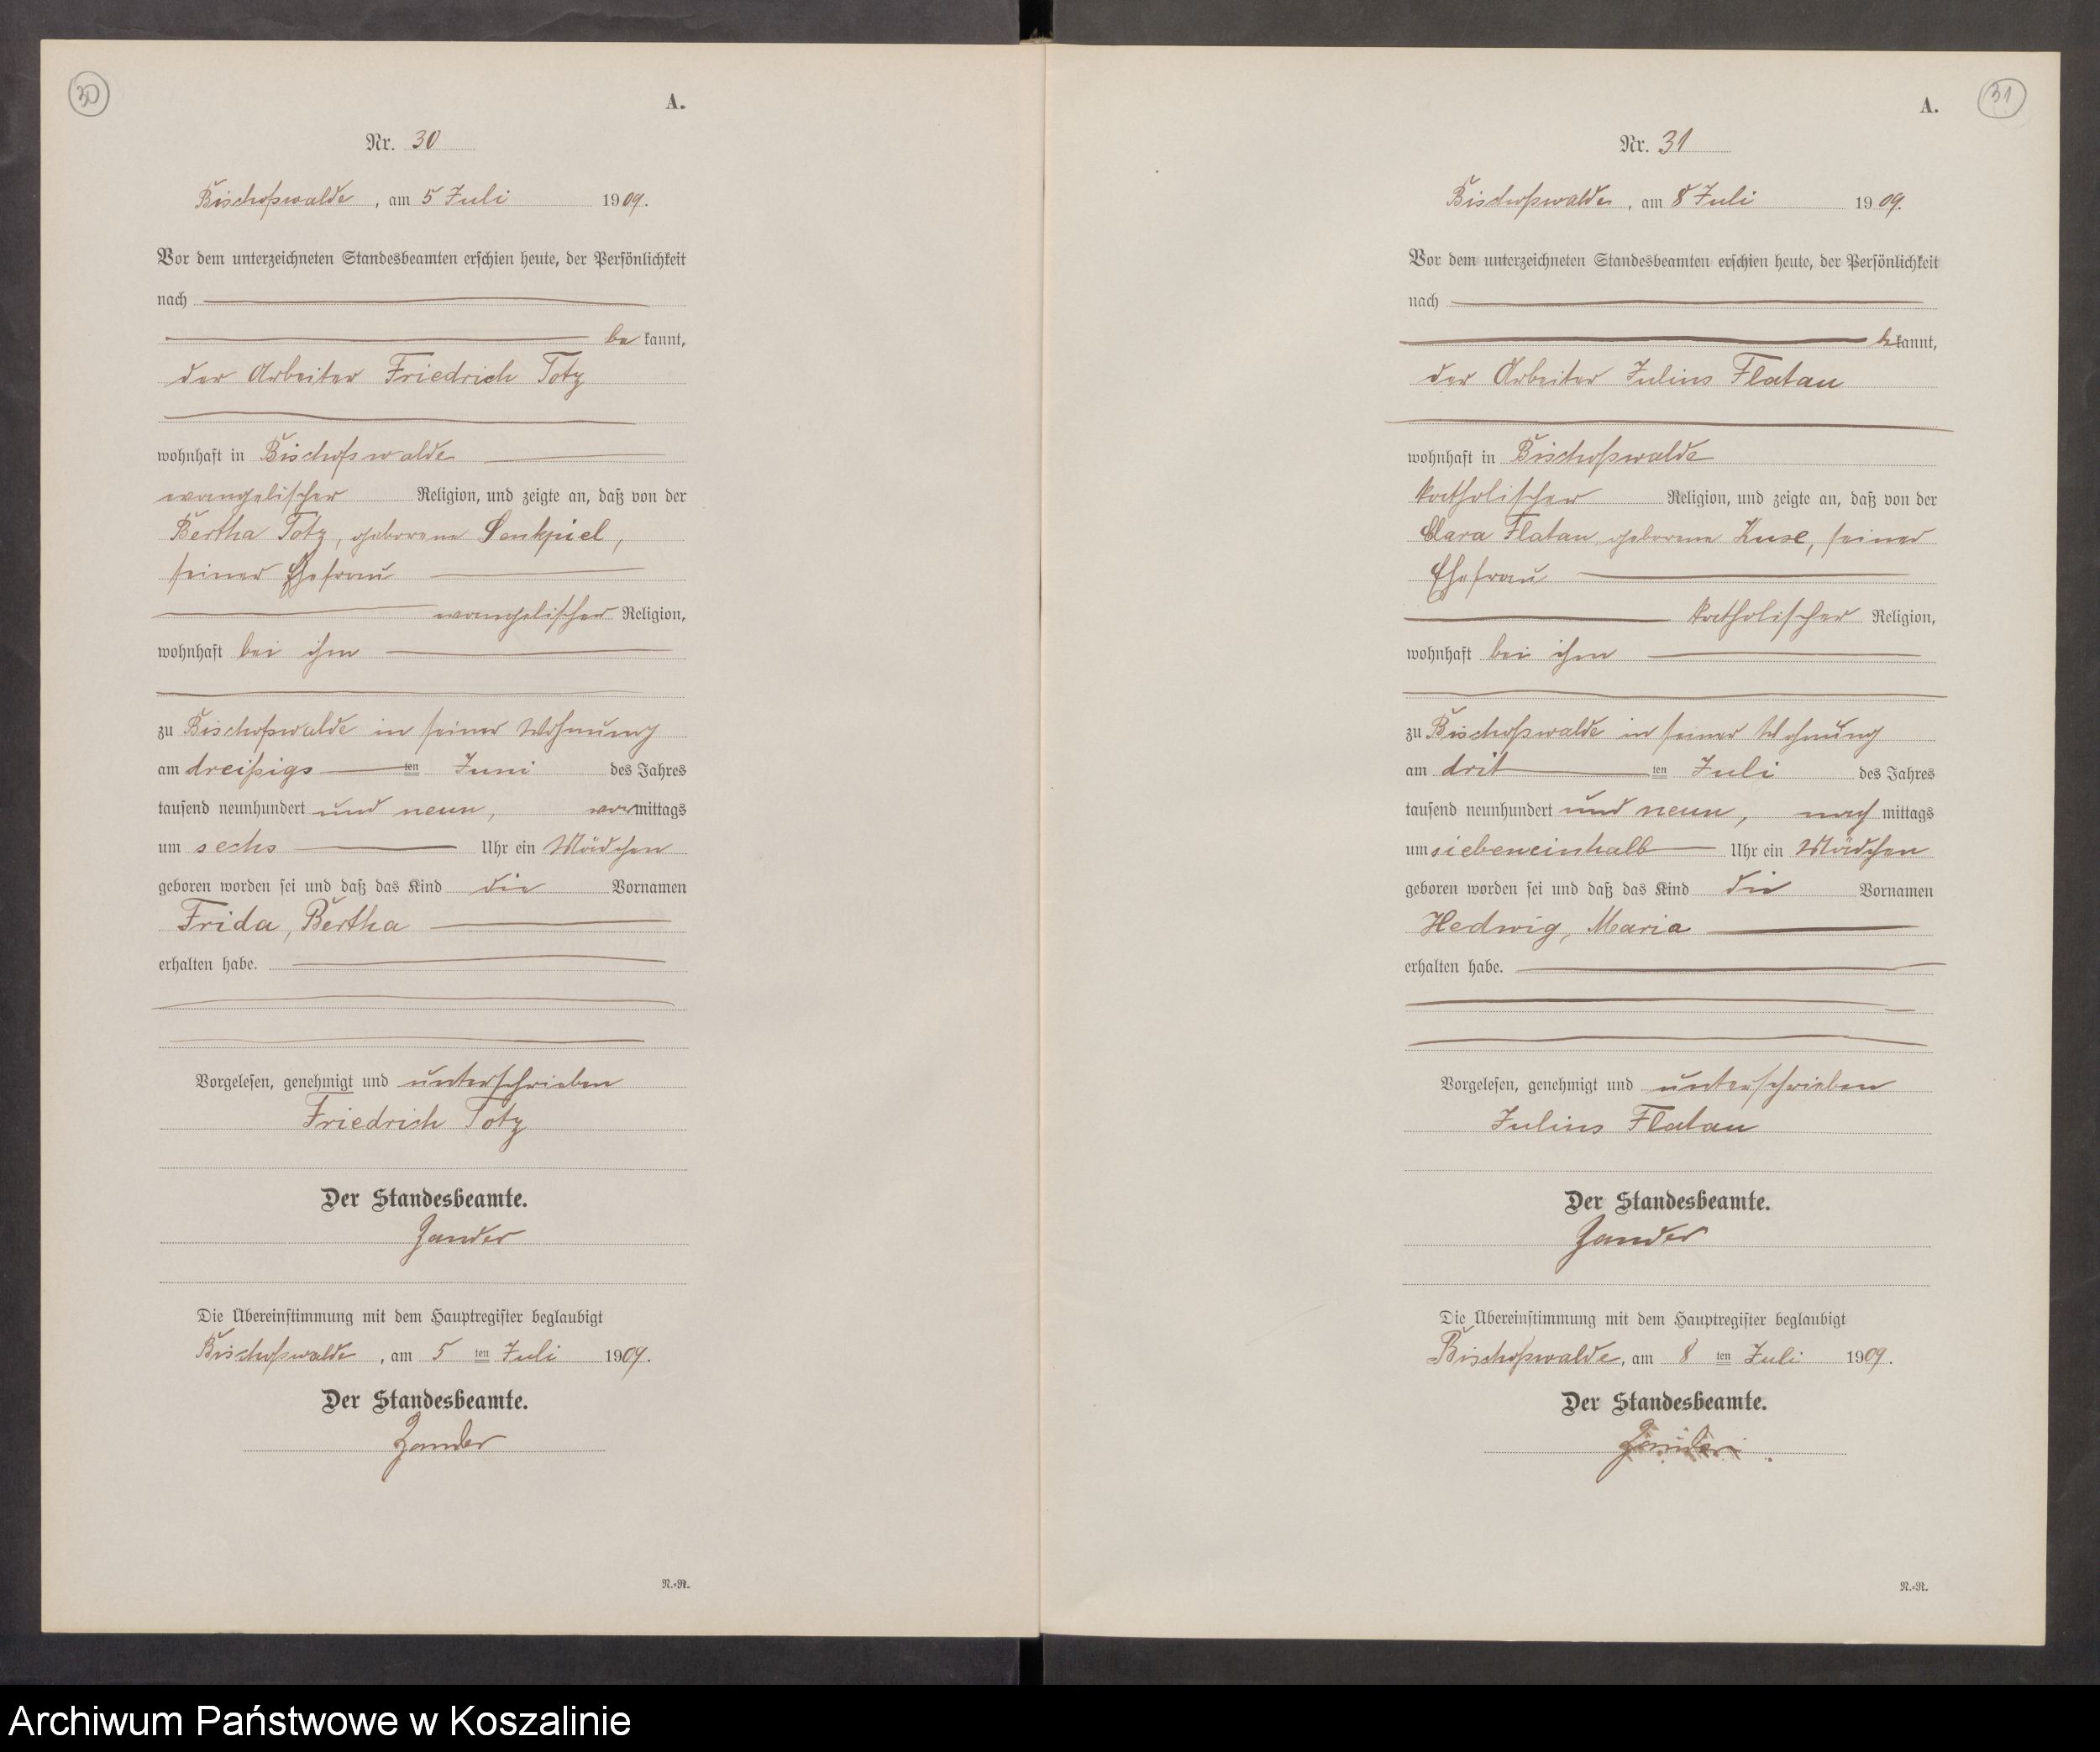 30
A.
Nr. 30
Bischofswalde, am 5 Juli 1909.
Vor dem unterzeichneten Standesbeamten erschien heute, der Persönlichkeit
nach
be kannt,
der Arbeiter Friedrich Totz
wohnhaft in Bischofswalde
evangelischer Religion, und zeigte an, daß von der
Bertha Totz, geborene Senkpiel,
seiner Ehefrau
evangelischer Religion,
wohnhaft bei ihm
zu Bischofswalde in seiner Wohnung
am dreißigs ten Juni des Jahres
tausend neunhundert und neun, vormittags
um sechs Uhr ein Mädchen
geboren worden sei und daß das Kind die Vornamen
Frida, Bertha
erhalten habe.
Vorgelesen, genehmigt und unterschrieben
Friedrich Totz
Der Standesbeamte.
Zander
Die Übereinstimmung mit dem Hauptregister beglaubigt
Bischofswalde, am 5 ten Juli 1909.
Der Standesbeamte.
Zander
N.-R.
31
A.
Nr. 31
Bischofswalde, am 8 Juli 1909.
Vor dem unterzeichneten Standesbeamten erschien heute, der Persönlichkeit
nach
bekannt,
der Arbeiter Julius Flatau
wohnhaft in Bischofswalde
katholischer Religion, und zeigte an, daß von der
Clara Flatau, geborene Kuse, seiner
Ehefrau
katholischer Religion,
wohnhaft bei ihm
zu Bischofswalde in seiner Wohnung
am drit ten Juli des Jahres
tausend neunhundert und neun, nach mittags
um siebeneinhalb Uhr ein Mädchen
geboren worden sei und daß das Kind die Vornamen
Hedwig, Maria
erhalten habe.
Vorgelesen, genehmigt und unterschrieben
Julius Flatau
Der Standesbeamte.
Zander
Die Übereinstimmung mit dem Hauptregister beglaubigt
Bischofswalde, am 8 ten Juli 1909.
Der Standesbeamte.
Zander
N.-R.
Archiwum Państwowe w Koszalinie